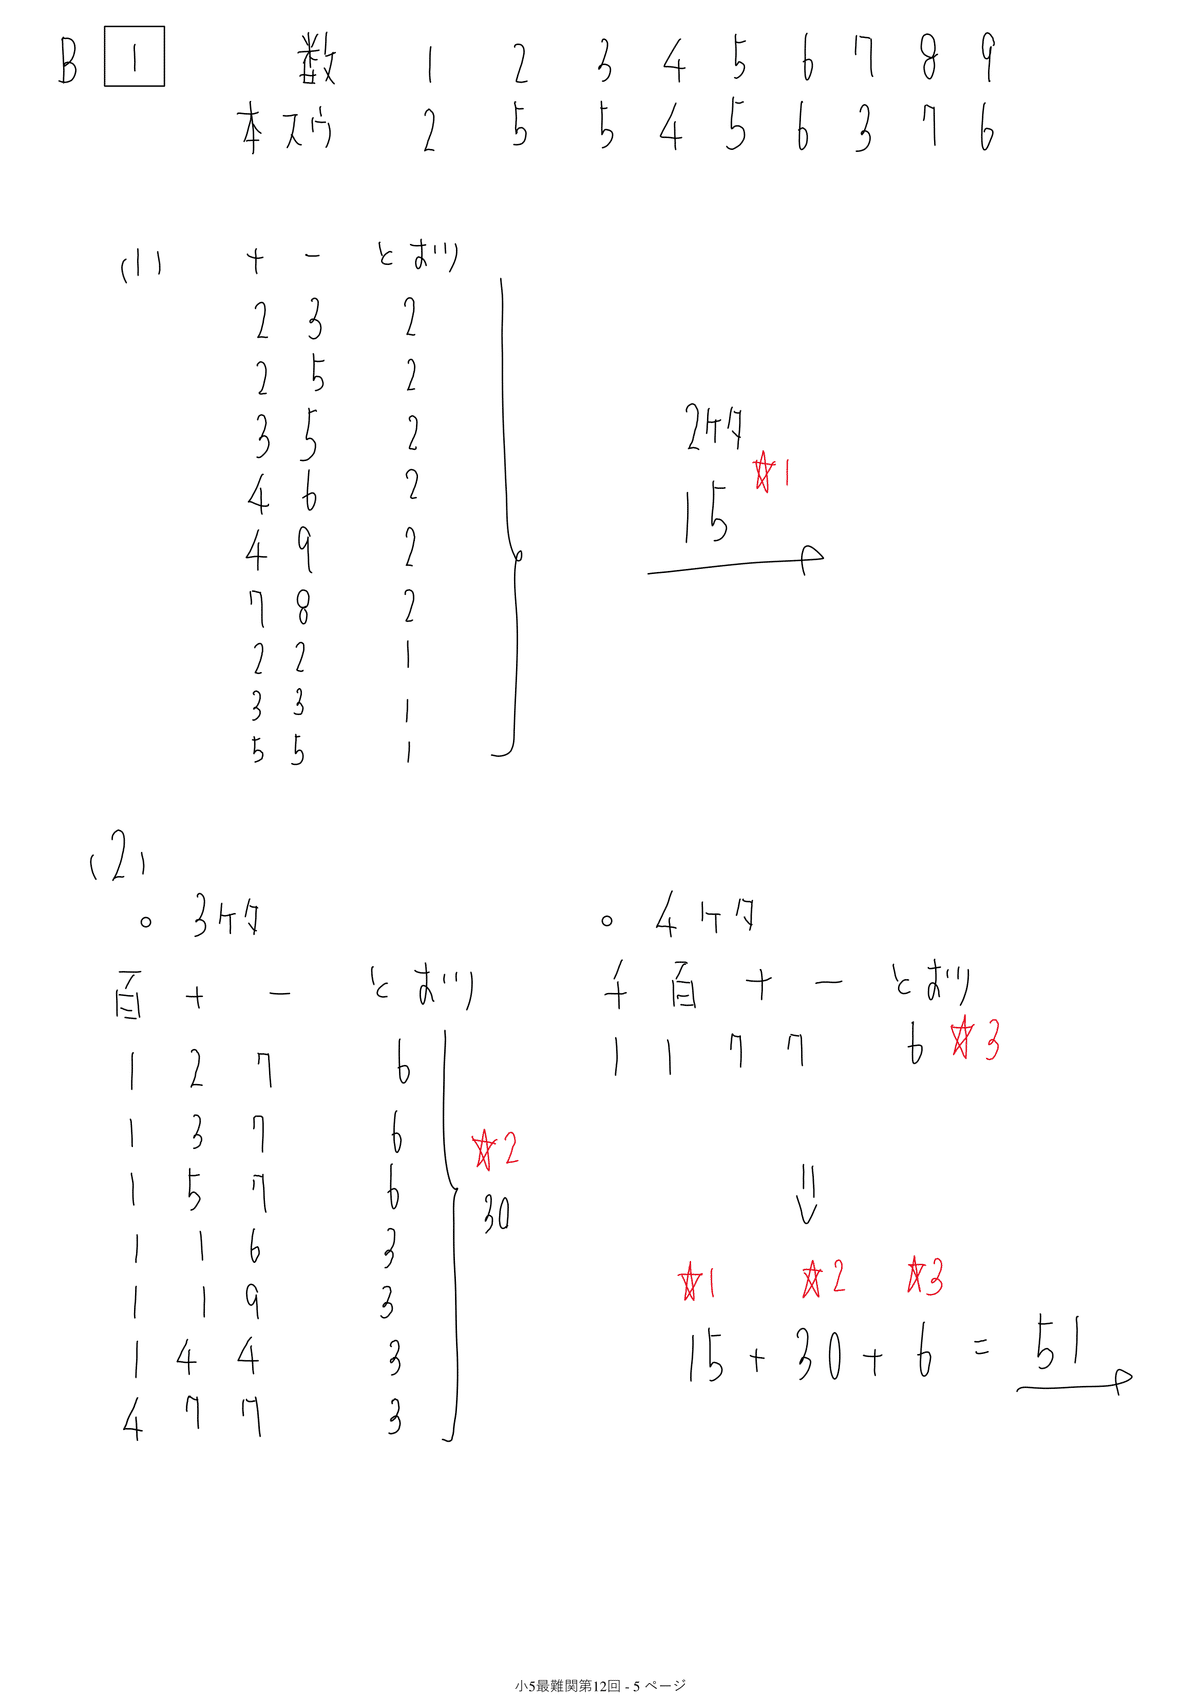 B 1 数 1 2 3 4 5 6 7 8 9
本スウ 2 5 5 4 5 6 3 7 6
(1) 十 一 とおり
2 3 2
2 5 2
3 5 2
4 6 2
4 9 2
7 8 2
2 2 1
3 3 1
5 5 1
2ケタ
15 ☆1
(2)
○ 3ケタ
百 十 一 とおり
1 2 7 6
1 3 7 6
1 5 7 6
1 1 6 3
1 1 9 3
1 4 4 3
4 7 7 3
☆2
30
○ 4ケタ
千 百 十 一 とおり
1 1 7 7 6 ☆3
⇓
☆1 ☆2 ☆3
15 + 30 + 6 = 51
小5最難関第12回 - 5 ページ